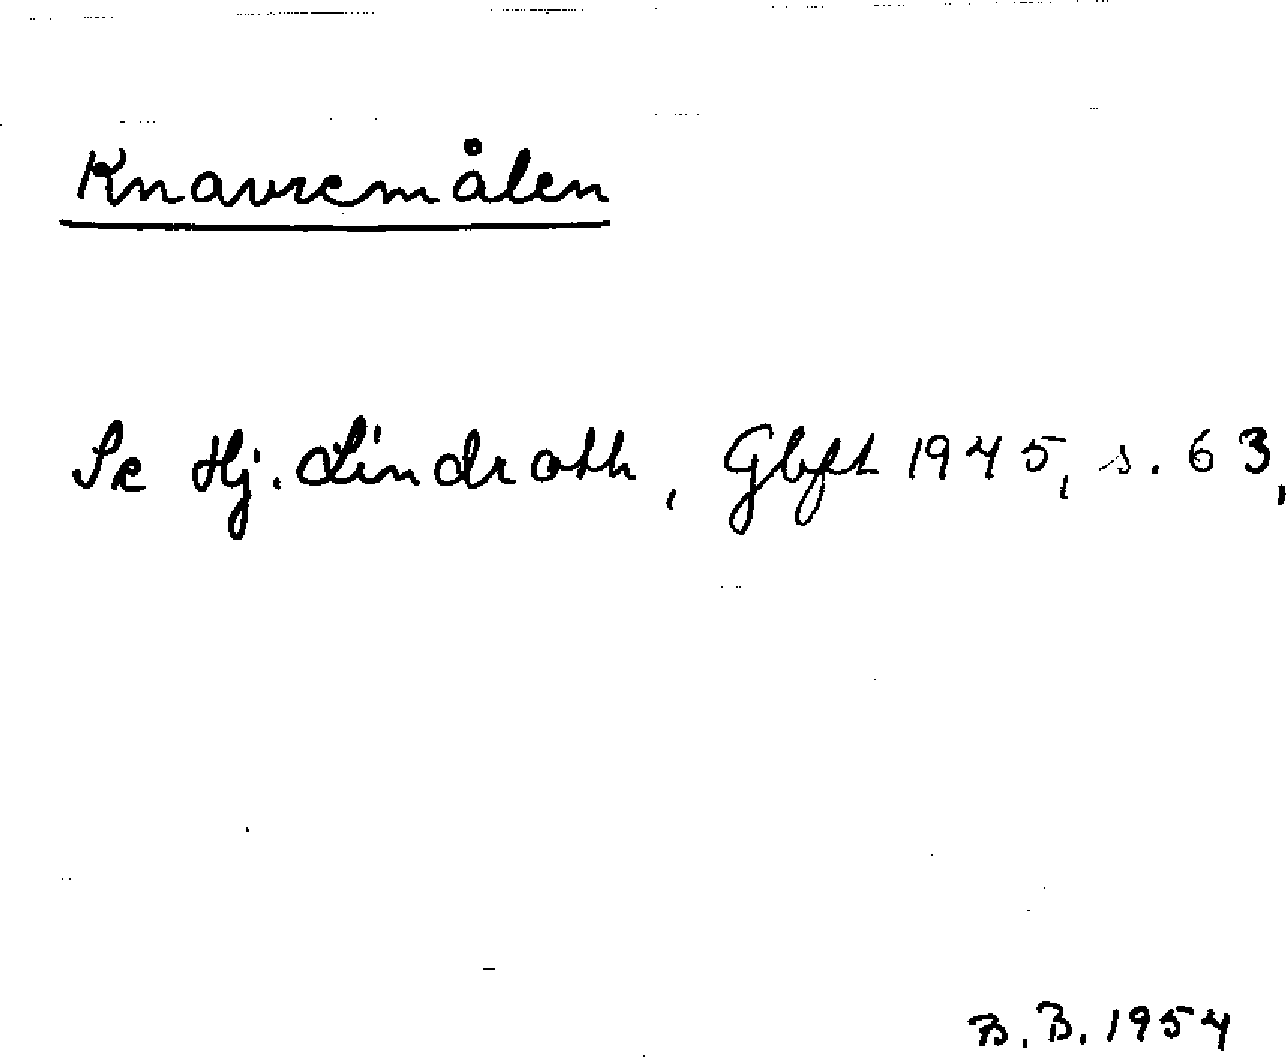 Knavremålen
Se Hj. Lindroth, Gbfht 1945, s. 63,
B.B. 1954